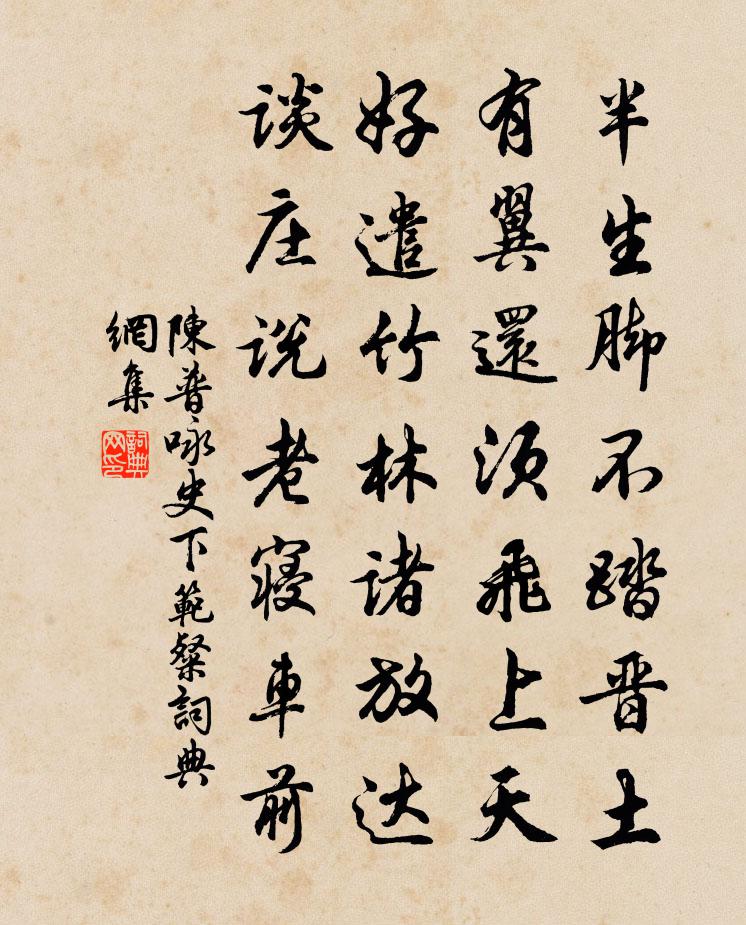 半生脚不踏晋土
有翼還须飛上天
好遣竹林诸放达
谈庄说老寝車前
陳普咏史下範粲詞典
網集
詞典
网印